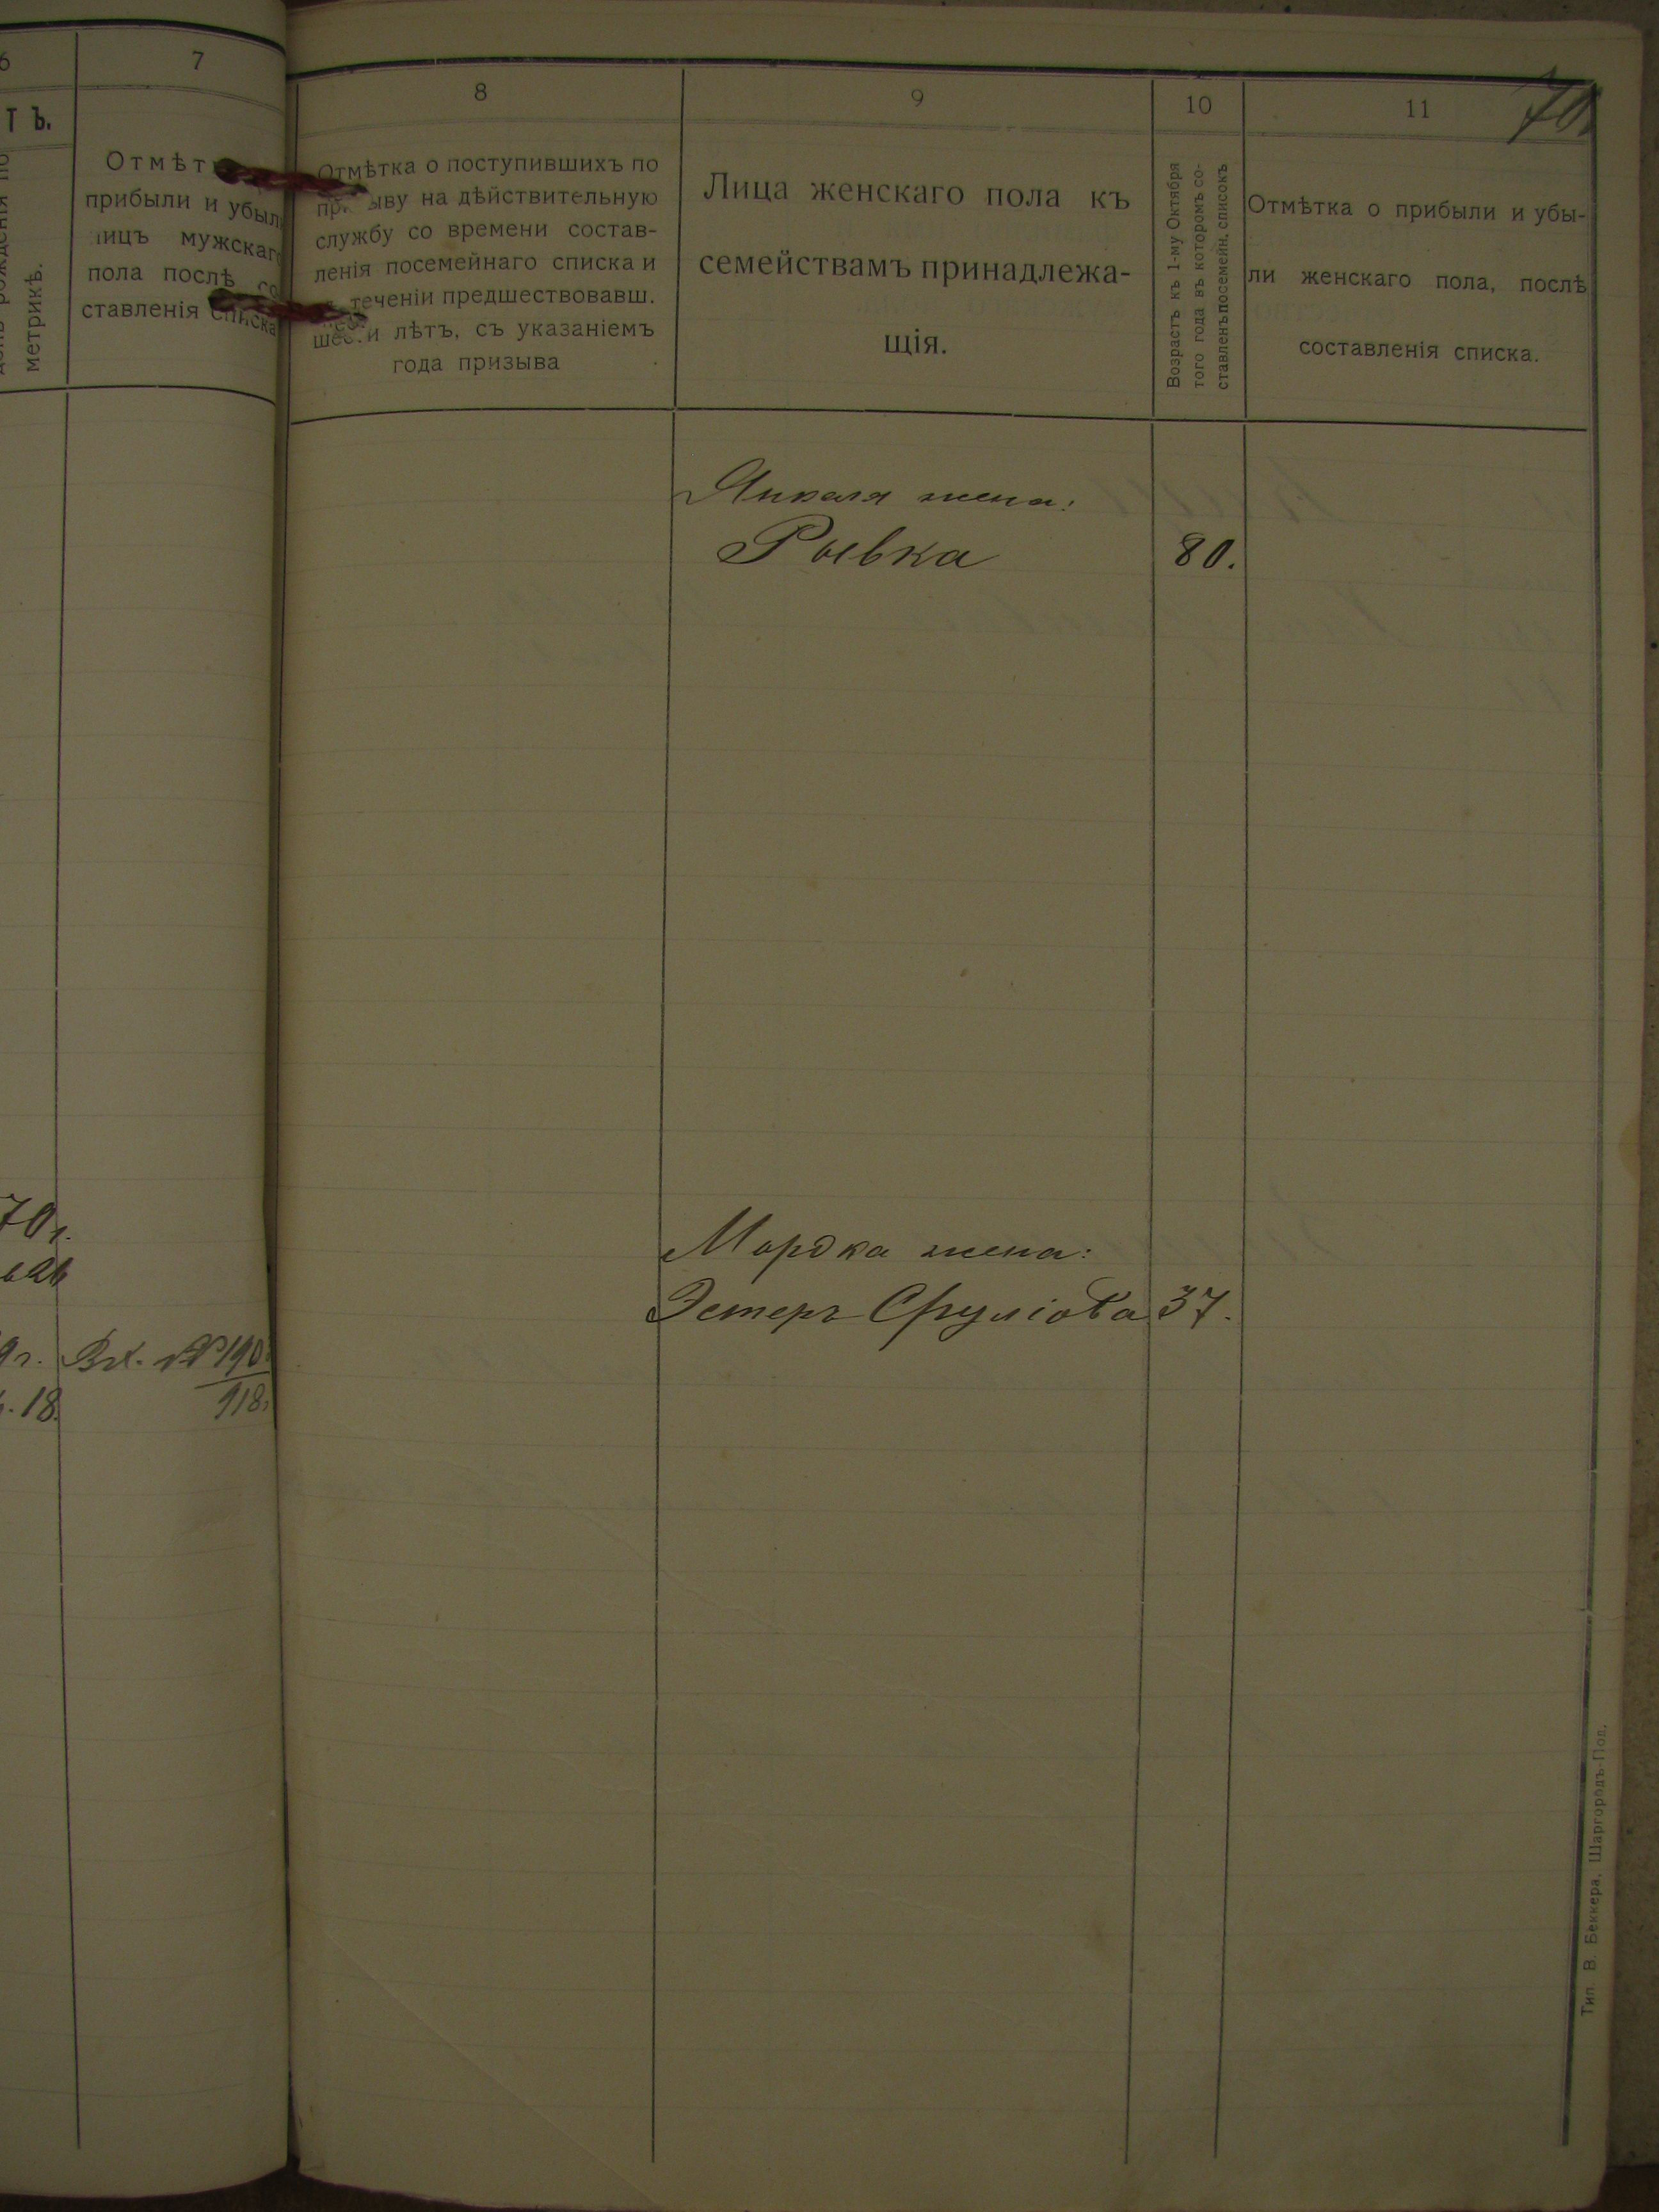 6
ТЪ.
метрикѣ.
70г.
9г.
18.
7
Отмѣт
прибыли и убыли
лицъ мужскаго
пола послѣ со
ставленія списка
Вх. № 190
118.
8
Отмѣтка о поступившихъ по
призыву на дѣйствительную
службу со времени состав-
ленія посемейнаго списка и
теченіи предшествовавш.
шести лѣтъ, съ указаніемъ
года призыва
9
Лица женскаго пола къ
семействамъ принадлежа-
щія.
10
Возрастъ къ 1-му Октября
того года въ которомъ со-
ставленъ посемейн. списокъ
11
70
Отмѣтка о прибыли и убы-
ли женскаго пола, послѣ
составленія списка.
Янкеля жена:
Рывка 80.
Мордка жена:
Эстеръ Сруліова 37.
Тип. В. Беккера, Шаргородъ-Под.